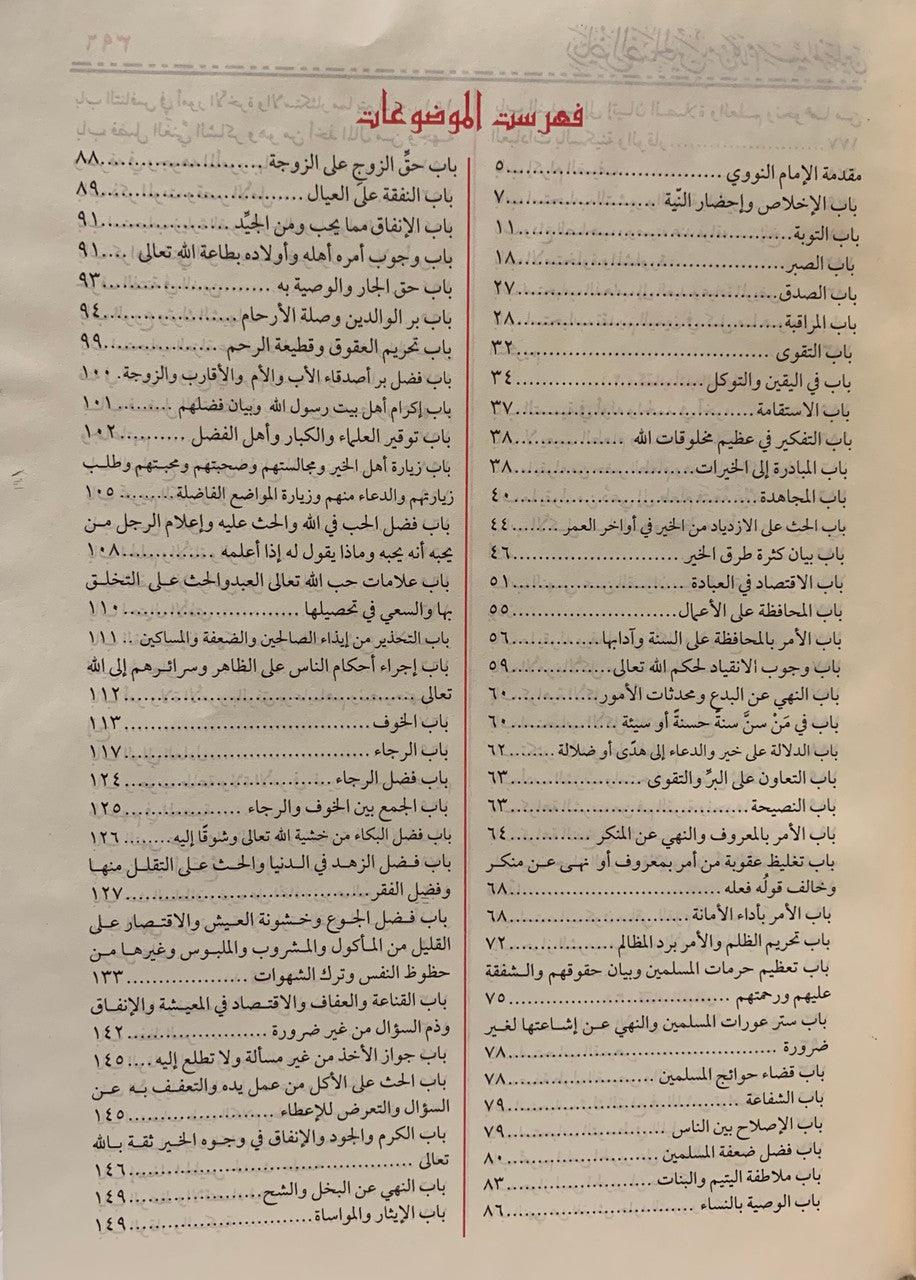 فهرست الموضوعات
مقدمة الإمام النووي ........................ ٥
باب الإخلاص وإحضار النّية ........................ ٧
باب التوبة........................ ١١
باب الصبر........................ ١٨
باب الصدق........................ ٢٧
باب المراقبة........................ ٢٨
باب التقوى ........................ ٣٢
باب في اليقين والتوكل ........................ ٣٤
باب الاستقامة ........................ ٣٧
باب التفكير في عظيم مخلوقات الله ........................ ٣٨
باب المبادرة إلى الخيرات........................ ٣٨
باب المجاهدة........................ ٤٠
باب الحث على الازدياد من الخير في أواخر العمر ........ ٤٤
باب بيان كثرة طرق الخير ........................ ٤٦
باب الاقتصاد في العبادة ........................ ٥١
باب المحافظة على الأعمال........................ ٥٥
باب الأمر بالمحافظة على السنة وآدابها........................ ٥٦
باب وجوب الانقياد لحكم الله تعالى........................ ٥٩
باب النهي عن البدع ومحدثات الأمور........................ ٦٠
باب في مَنْ سنَّ سنةً حسنةً أو سيئة ........................ ٦٠
باب الدلالة على خير والدعاء إلى هدًى أو ضلالة ........ ٦٢
باب التعاون على البرِّ والتقوى ........................ ٦٣
باب النصيحة........................ ٦٣
باب الأمر بالمعروف والنهي عن المنكر ........................ ٦٤
باب تغليظ عقوبة من أمر بمعروف أو نهى عن منكر
وخالف قولُه فعله ........................ ٦٨
باب الأمر بأداء الأمانة ........................ ٦٨
باب تحريم الظلم والأمر برد المظالم ........................ ٧٢
باب تعظيم حرمات المسلمين وبيان حقوقهم والشفقة
عليهم ورحمتهم ........................ ٧٥
باب ستر عورات المسلمين والنهي عن إشاعتها لغير
ضرورة ........................ ٧٨
باب قضاء حوائج المسلمين ........................ ٧٨
باب الشفاعة ........................ ٧٩
باب الإصلاح بين الناس ........................ ٧٩
باب فضل ضعفة المسلمين ........................ ٨٠
باب ملاطفة اليتيم والبنات ........................ ٨٣
باب الوصية بالنساء ........................ ٨٦
باب حقِّ الزوجِ على الزوجة ........................ ٨٨
باب النفقة على العيال ........................ ٨٩
باب الإنفاق مما يحب ومن الجيِّد........................ ٩١
باب وجوب أمره أهله وأولاده بطاعة الله تعالى ..... ٩١
باب حق الجار والوصية به ........................ ٩٣
باب بر الوالدين وصلة الأرحام........................ ٩٤
باب تحريم العقوق وقطيعة الرحم ........................ ٩٩
باب فضل بر أصدقاء الأب والأم والأقارب والزوجة. ١٠٠
باب إكرام أهل بيت رسول الله وبيان فضلهم .......... ١٠١
باب توقير العلماء والكبار وأهل الفضل .......... ١٠٢
باب زيارة أهل الخير ومجالستهم وصحبتهم ومحبتهم وطلب
زيارتهم والدعاء منهم وزيارة المواضع الفاضلة......... ١٠٥
باب فضل الحب في الله والحث عليه وإعلام الرجل من
يحبه أنه يحبه وماذا يقول له إذا أعلمه .............. ١٠٨
باب علامات حب الله تعالى العبدوالحث على التخلق
بها والسعي في تحصيلها ........................ ١١٠
باب التحذير من إيذاء الصالحين والضعفة والمساكين .. ١١١
باب إجراء أحكام الناس على الظاهر وسرائرهم إلى الله
تعالى ........................ ١١٢
باب الخوف........................ ١١٣
باب الرجاء ........................ ١١٧
باب فضل الرجاء........................ ١٢٤
باب الجمع بين الخوف والرجاء ........................ ١٢٥
باب فضل البكاء من خشية الله تعالى وشوقًا إليه........ ١٢٦
باب فضل الزهد في الدنيا والحث على التقلل منها
وفضل الفقر........................ ١٢٧
باب فضل الجوع وخشونة العيش والاقتصار على
القليل من المأكول والمشروب والملبوس وغيرها من
حظوظ النفس وترك الشهوات ........................ ١٣٣
باب القناعة والعفاف والاقتصاد في المعيشة والإنفاق
وذم السؤال من غير ضرورة ........................ ١٤٢
باب جواز الأخذ من غير مسألة ولا تطلع إليه ..... ١٤٥
باب الحث على الأكل من عمل يده والتعفف به عن
السؤال والتعرض للإعطاء ........................ ١٤٥
باب الكرم والجود والإنفاق في وجوه الخير ثقة بالله
تعالى ........................ ١٤٦
باب النهي عن البخل والشح........................ ١٤٩
باب الإيثار والمواساة........................ ١٤٩